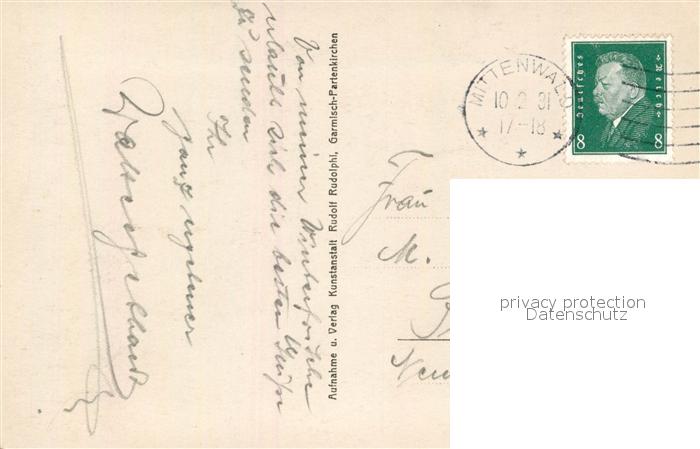 MITTENWALD
10. 2. 31
17-18
Deutsches Reich
8 8
Von meiner Winterfrische
erlaubt sich die besten Grüße
zu senden
Ihr
ganz ergebener
Aufnahme u. Verlag Kunstanstalt Rudolf Rudolphi, Garmisch-Partenkirchen
Frau
M.
privacy protection
Datenschutz